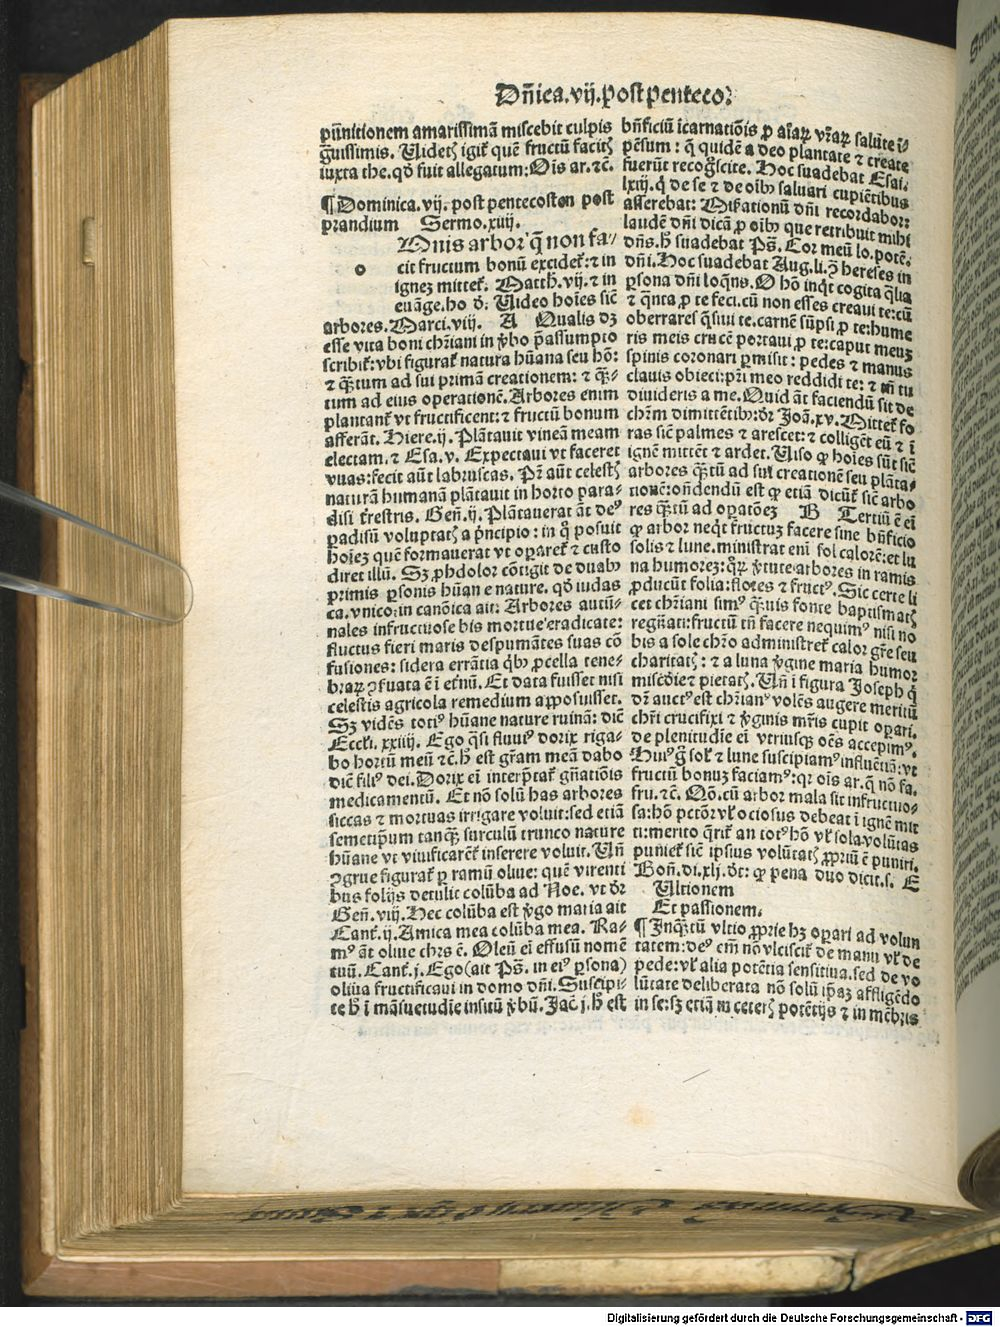 Dñica.vij.post penteco?
pũnitionem amarissimã miscebit culpis
g̃uissimis. Uidetꝭ igit̃ quẽ fructũ facitꝭ
iuxta the. qđ fuit allegatum: Oĩs ar. ⁊c̃.
¶ Dominica. vij. post pentecosten post
prandium Sermo. xiij.
Omnis arbor q̃ non fa-
o cit fructum bonũ excidet̃: ⁊ in
ignez mittet̃. Matth̃. vij. ⁊ in
euãge. ho đ. Uideo hoĩes sic̃
arbores. Marci. viij. A Qualis dꝫ
esse vita boni chr̃iani in ꝟbo p̃assumpto
scribit̃: vbi figurat̃ natura hũana seu hõ:
⁊ q̃ꝫtum ad sui primã creationem: ⁊ q̃ꝫ-
tum ad eius operationẽ. Arbores enim
plantant̃ vt fructificent: ⁊ fructũ bonum
afferãt. Hiere. ij. Plãtauit vineã meam
electam. ⁊ Esa. v. Expectaui vt faceret
vuas: fecit aũt labruscas. Pr̃ aũt celestꝭ
naturã humanã plãtauit in horto para-
disi tr̃estris. Geñ. ij. Plãtauerat ãt deꝰ
ꝑadisũ voluptatꝭ a p̃ncipio: in q̊ posuit
hoĩez quẽ formauerat vt oꝑaret̃ ⁊ custo
diret illũ. Sꝫ ꝓhdolor cõtigit de duabꝰ
primis ꝑsonis hũane nature. qđ iudas
ca. vnico: in canõica ait: Arbores autũ-
nales infructuose bis mortue eradicate:
fluctus fieri maris despumãtes suas cõ
fusiones: sidera errãtia q̇bꝰ ꝓcella tene-
braꝝ ꝯseruata ẽ ĩ et̃nũ. Et data fuisset nisi
celestis agricola remedium apposuisset.
Sꝫ vidẽs totiꝰ hũane nature ruinã: dic̃
Eccl̃i. xxiiij. Ego q̃si fluuiꝰ dorix riga-
bo hortũ meũ ⁊c̃. h̃ est gr̃am meã dabo
dic̃ filiꝰ dei. Dorix eĩ interp̃tat̃ gñatiõis
medicamentũ. Et nõ solũ has arbores
siccas ⁊ mortuas irrigare voluit: sed etiã
semetip̃um tanq̃ꝫ surculũ trunco nature
hũane vt viuificarẽt̃ inserere voluit. Uñ
ꝯgrue figurat̃ ꝑ ramũ oliue: quẽ virenti
bus folijs detulit colũba ad Noe. vt dr̃
Geñ. viij. Hec colũba est ꝟgo maria ait
Cant̃. ij. Amica mea colũba mea. Ra-
mꝰ ãt oliue chr̃s ẽ. Oleũ eĩ effusũ nomẽ
tuũ. Cant̃. j. Ego (ait Ps̃. in eiꝰ ꝑsona)
oliua fructificaui in domo dñi. Suscipi-
te h̃ ĩ mãsuetudĩe insitũ ꝟbũ. Jac̃ j. h̃ est
bñficiũ ĩcarnatiõis ꝓ aĩaꝝ vr̃aꝝ salute ĩ-
pẽsum: q̃ quidẽ a deo plantate ⁊ create
fuerũt recog̃scite. Hoc suadebat Esai.
lxiij. q̇ de se ⁊ de oĩbꝰ saluari cupiẽtibus
asserebat: Miẽrationũ dñi recordabor:
laudẽ dñi dicã ꝓ oĩbꝰ que retribuit mihi
dñs. h̃ suadebat Ps̃. Cor meũ lo. potẽ.
dñi. Hoc suadebat Aug. li. ꝯ̃ hereses in
ꝑsona dñi loq̃ns. O hõ inq̇t cogita q̃lia
⁊ q̃nta ꝓ te feci. cũ non esses creaui te: cũ
oberrares q̃siui te. carnẽ sũpsi ꝓ te: hume
ris meis crucẽ portaui ꝓ te: caput meuꝫ
spinis coronari ꝑmisi: pedes ⁊ manus
clauis obieci: pr̃i meo reddidi te: ⁊ tñ tu
diuideris a me. Quid ãt faciendũ sit de
chr̃m dimittẽtibꝰ: dr̃ Joã. xv. Mittet̃ fo
ras sic̃ palmes ⁊ arescet: ⁊ colligẽt eũ ⁊ ĩ
ignẽ mittẽt ⁊ ardet. Uiso ꝙ hoĩes sũt sic̃
arbores q̃ꝫtũ ad sui creationẽ seu plãta-
tionẽ: oñdendũ est ꝙ etiã dicũt̃ sic̃ arbo
res q̃ꝫtũ ad oꝑatõez B Tertiũ ẽ eĩ
ꝙ arboz neq̇t fructuꝫ facere sine bñficio
solis ⁊ lune. ministrat enĩ sol calorẽ: et lu
na humorez: q̃ꝝ ꝟtute arbores in ramis
ꝓducũt folia: flores ⁊ fructꝰ. Sic certe li
cet chr̃iani simꝰ q̃ꝫuis fonte baptismatꝭ
regñati: fructũ tñ facere nequimꝰ nisi no
bis a sole chr̃o administret̃ calor gr̃e seu
charitatꝭ: ⁊ a luna ꝟgine maria humor
miscõdie ⁊ pietatꝭ. Uñ ĩ figura Joseph q̇
dr̃ auctꝰ est chr̃ianꝰ volẽs augere meritũ
chr̃i crucifixi ⁊ ꝟginis mr̃is cupit oꝑari.
de plenitudĩe eĩ vtriusqꝫ oẽs accepimꝰ.
Huiꝰ g̃ sol̃ ⁊ lune suscipiamꝰ influẽtiã: vt
fructũ bonuꝫ faciamꝰ: qꝛ oĩs ar. q̃ nõ fa.
fru. ⁊c̃. Oõ. cũ arbor mala sit infructuo-
sa: hõ pctõr vl̃ ociosus debeat ĩ ignẽ mit
ti: merito q̃rit̃ an totꝰ hõ vl̃ sola volũtas
puniet̃ sic̃ ipsius volũtatꝭ ꝓpriũ ẽ puniri.
Boñ. di. xlj. đt: ꝙ pena duo dicit. s. E
Ultionem
Et passionem.
¶ Inq̃ꝫtũ vltio ꝓprie hꝫ oꝑari ad volun
tatem: deꝰ em̃ nõ vlciscit̃ de manu vl̃ de
pede: vl̃ alia potẽtia sensitiua. sed de vo
lũtate deliberata nõ solũ ip̃aꝫ affligẽdo
in se: sꝫ etiã in ceterꝭ potẽtijs ⁊ in mẽbris
Digitalisierung gefördert durch die Deutsche Forschungsgemeinschaft - DFG